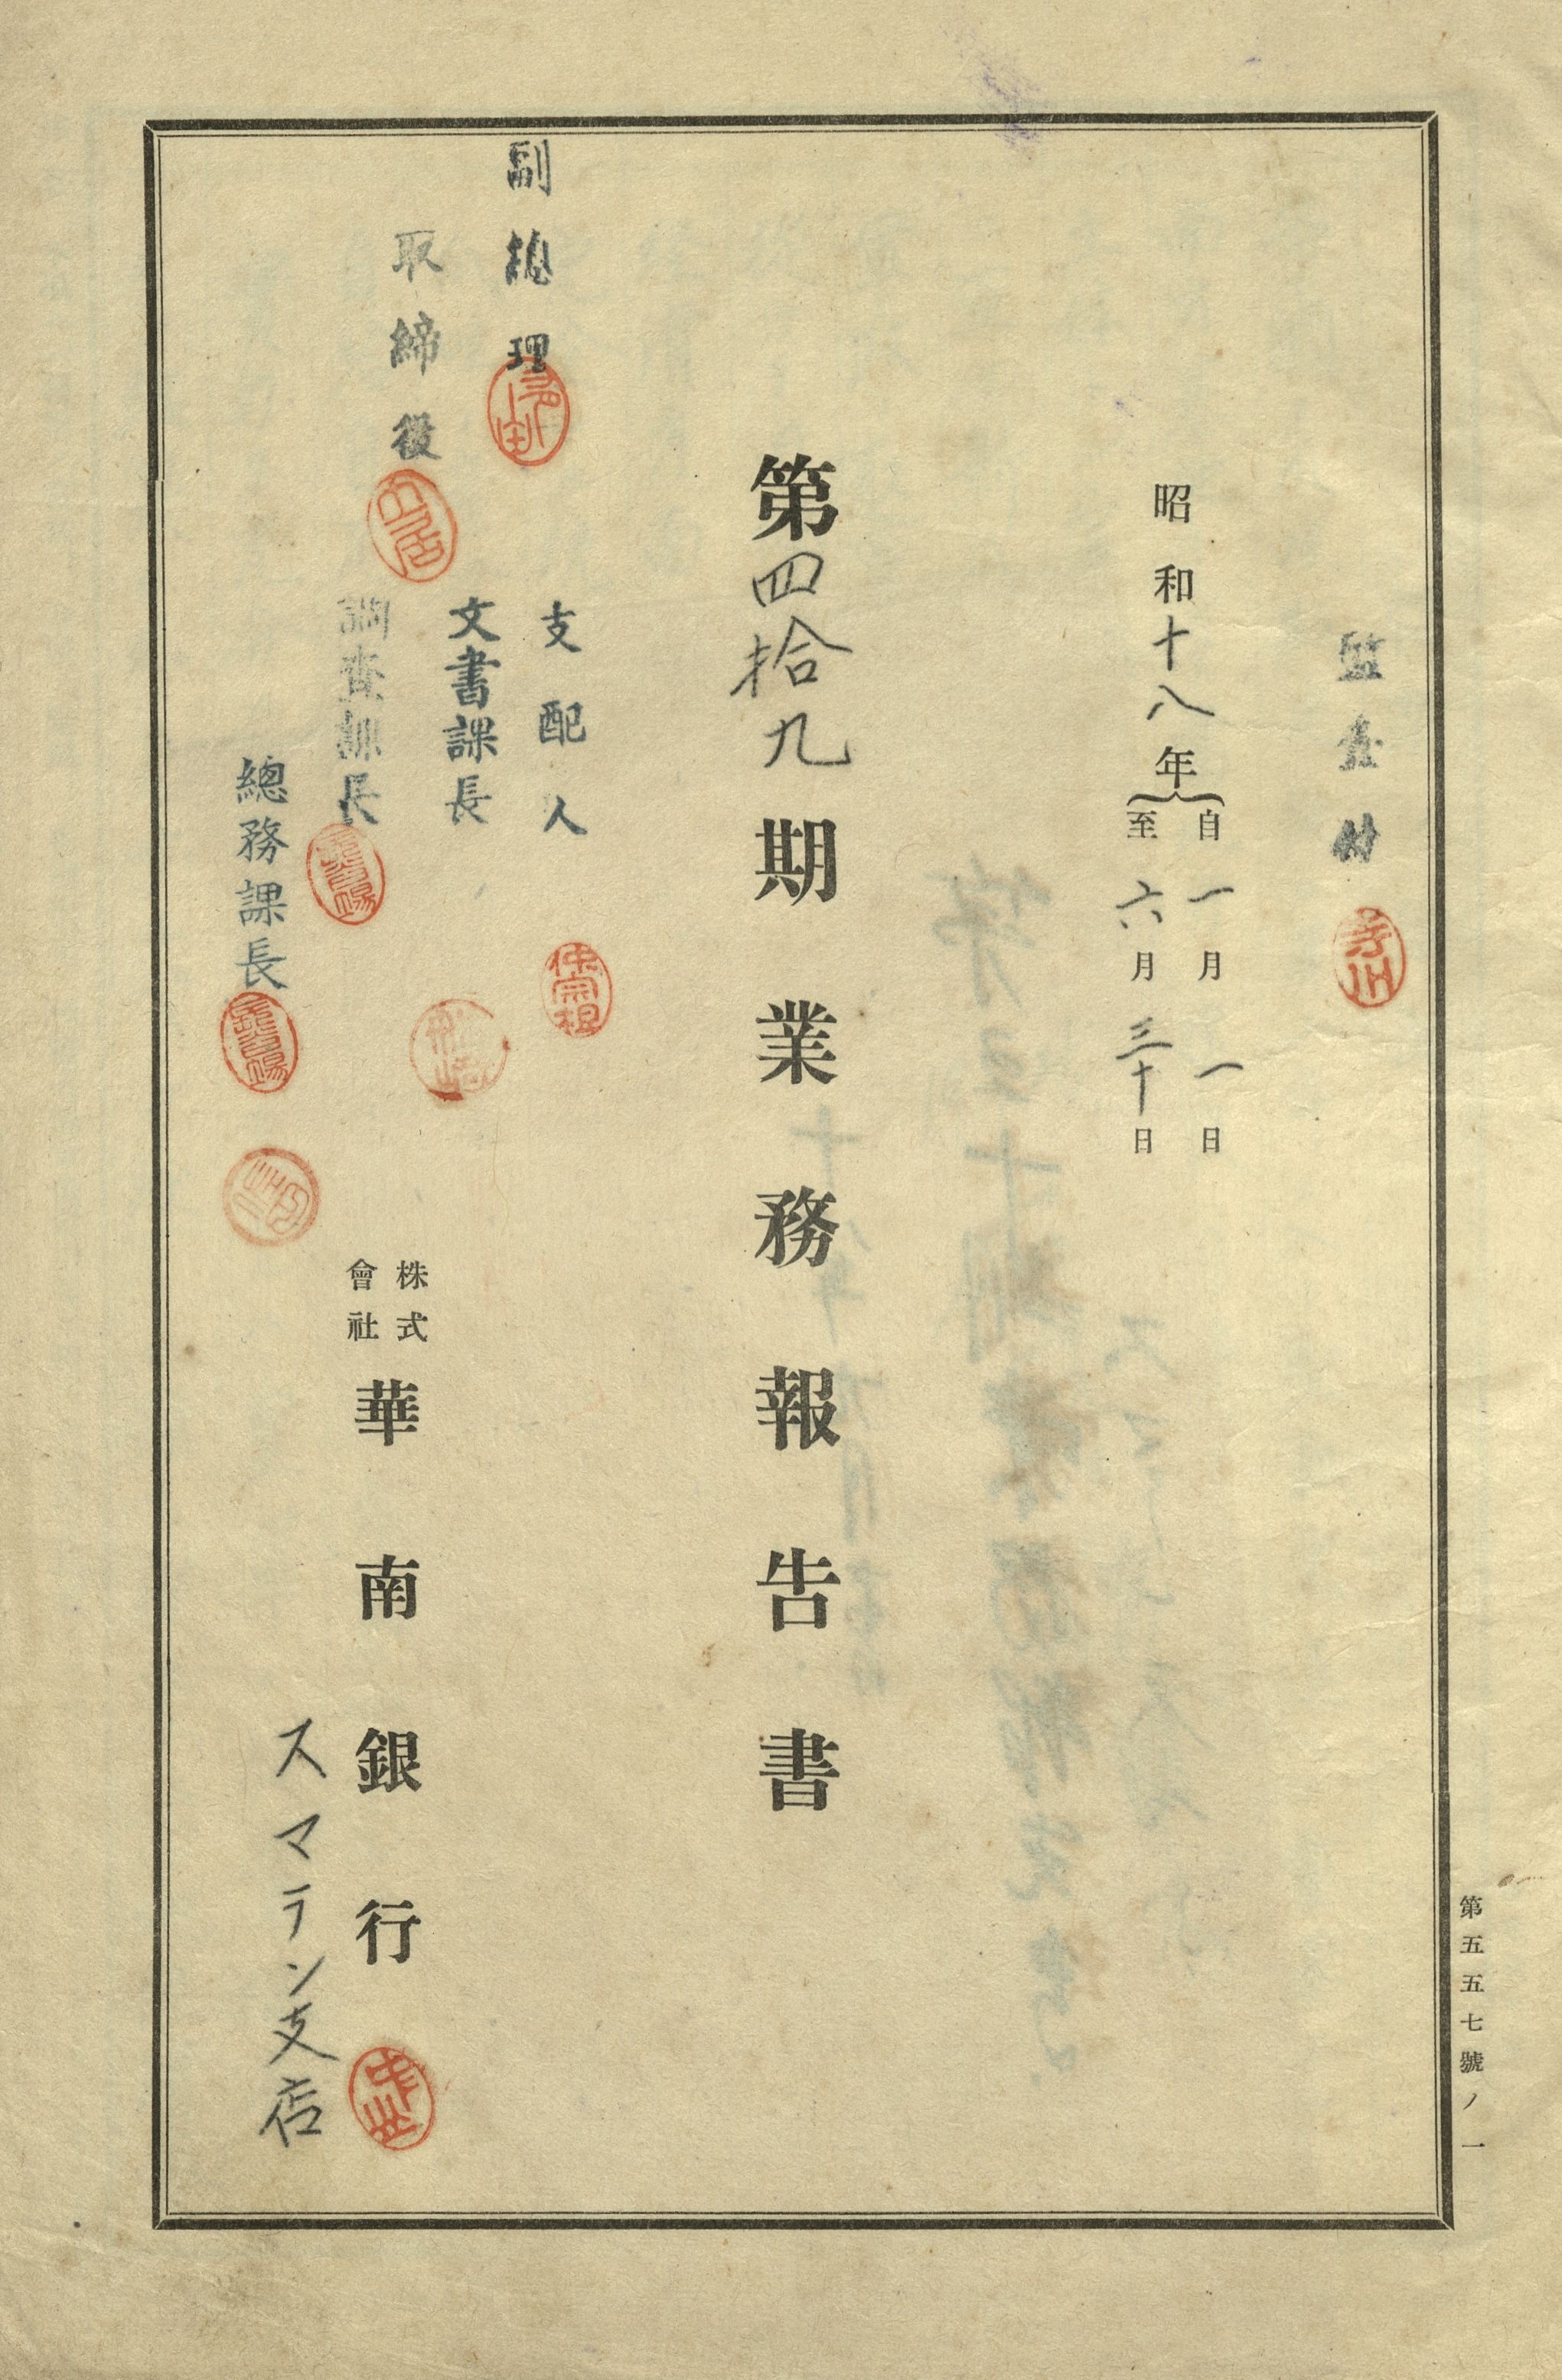 監査部
昭和十八年
自一月一日
至六月三十日
第四拾九期業務報告書
支配人
副總理
文書課長
取締役
調査課長
總務課長
株式會社華南銀行
スマラン支店
第五五七號ノ一
仲宗根